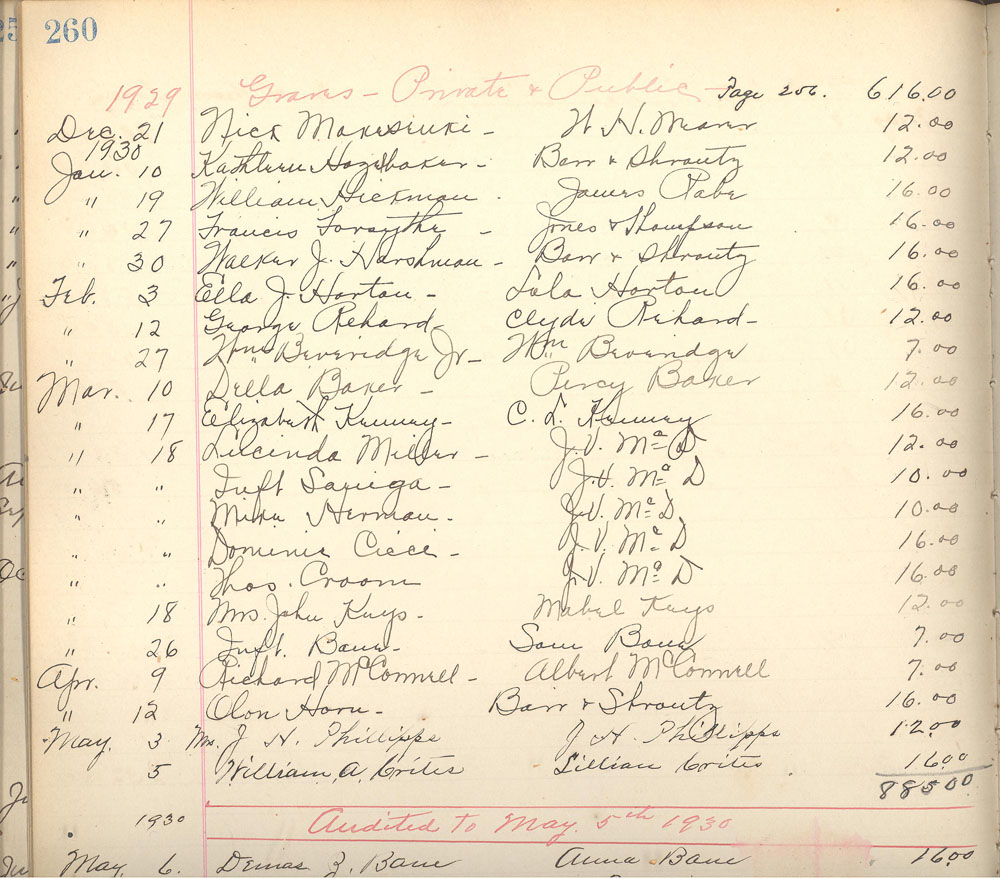 260
1929 Graves - Private & Public - Page 256. 616.00
Dec. 21 Nick - W. H. 12.00
1930
Jan. 10 Kathleen Hazelbaker - Barr & Shrontz 12.00
" 19 William Hickman. James Rabe 16.00
" 27 Francis Forsythe - Jones & Thompson 16.00
" 30 Walker J. Harshman - Barr & Shrontz 16.00
Feb. 3 Ella J. Horton - Lula Horton 16.00
" 12 George Rehard - Clyde Rehard - 12.00
" 27 Wm Beveridge Jr - Wm Beveridge 7.00
Mar. 10 Della Baker - Percy Baker 12.00
" 17 Elizabeth - C. L. 16.00
" 18 Lucinda Miller - J. V. Mc D 12.00
" " Inft - J. V. Mc D 10.00
" " Herman - J. V. Mc D 10.00
" " Dominic - J. V. Mc D 16.00
" " Thos. Croom J. V. Mc D 16.00
" 18 Mrs. John Keys - Mabel Keys 12.00
" 26 Inft. Bane - Sam Bane 7.00
Apr. 9 Richard McConnell - Albert McConnell 7.00
" 12 Olon Horn - Barr & Shrontz 16.00
May. 3 Mrs. J. H. Phillipps J. H. Phillipps 12.00
5 William A. Crites Lillian Crites 16.00
885.00
1930 Audited to May. 5th 1930
May. 6. Demas Z. Bane Anna Bane 16.00